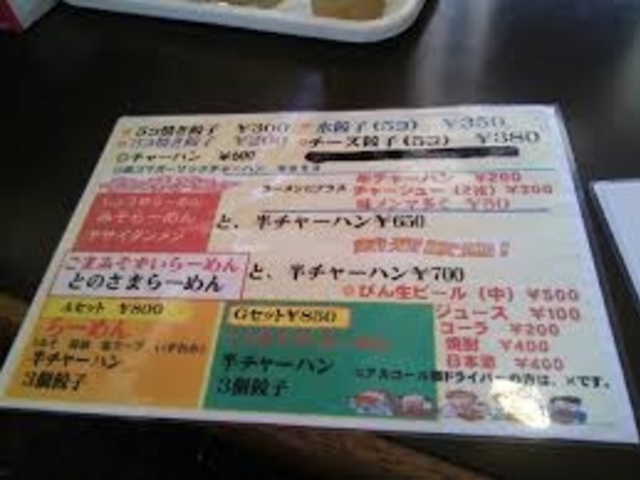 5コ焼き餃子 ¥300
水餃子(5コ) ¥350
¥200
チーズ餃子(5コ) ¥380
チャーハン ¥600
ガーリックチャーハン
ラーメンにプラス
半チャーハン ¥200
チャーシュー(2枚) ¥300
味メンマ多く ¥50
しょうゆらーめん
みそらーめん
ヤサイタンメン
と、半チャーハン¥650
らーめん
とのさまらーめん
と、半チャーハン¥700
びん生ビール(中) ¥500
ジュース ¥100
コーラ ¥200
焼酎 ¥400
日本酒 ¥400
※アルコール類ドライバーの方は、×です。
Aセット ¥800
らーめん
半チャーハン
3個餃子
Gセット¥850
半チャーハン
3個餃子